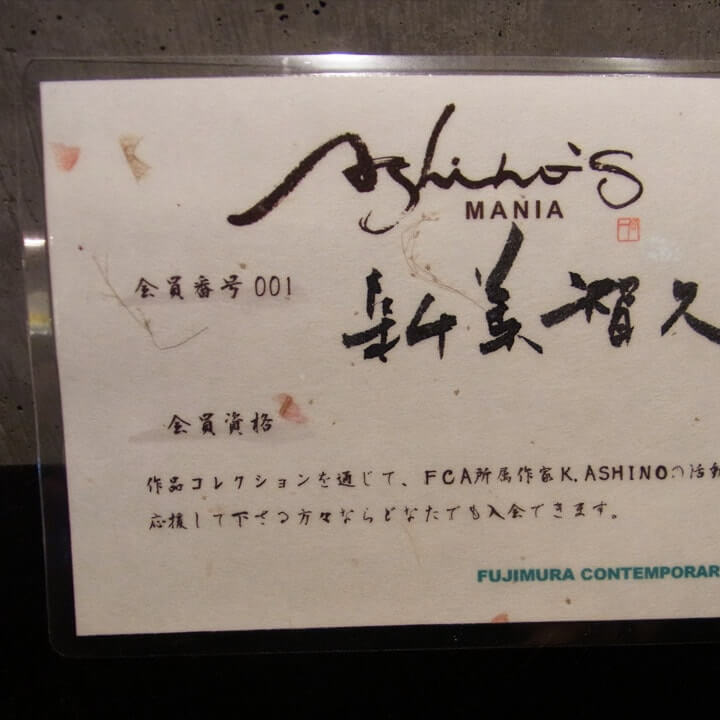 Ashino's
MANIA
会員番号 001
新美智久
会員資格
作品コレクションを通じて、FCA所属作家K.ASHINOの活動
応援して下さる方々ならどなたでも入会できます。
FUJIMURA CONTEMPORAR